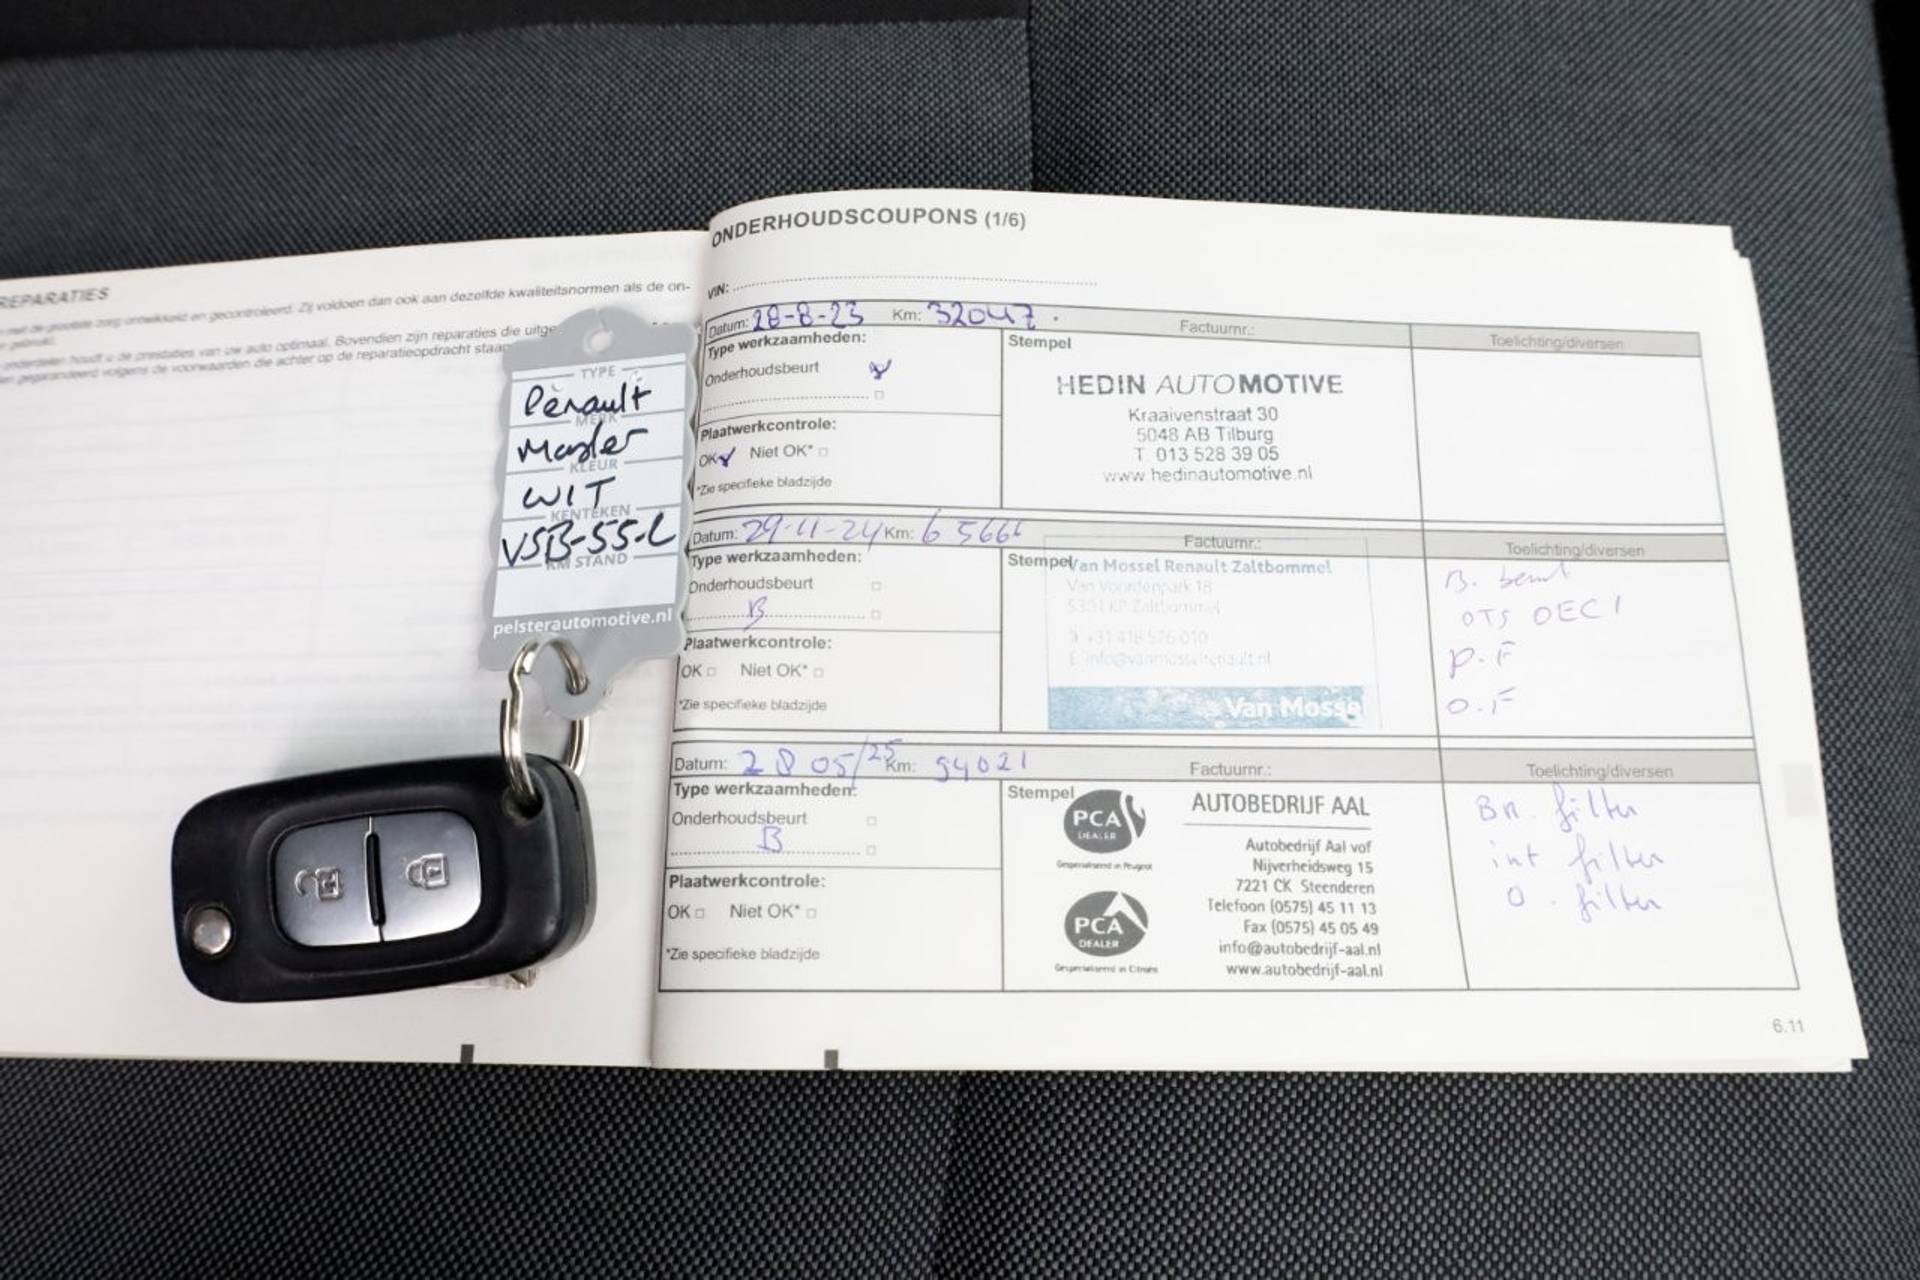 REPARATIES
Zij voldoen dan ook aan dezelfde kwaliteitsnormen als de on-
houdt u de prestaties van uw auto optimaal. Bovendien zijn reparaties die uitge
gegarandeerd volgens de voorwaarden die achter op de reparatieopdracht staan
TYPE
Renault
MERK
Master
KLEUR
WIT
KENTEKEN
VSB-55-L
KM STAND
pelsterautomotive.nl
ONDERHOUDSCOUPONS (1/6)
VIN:
Datum: 28-8-23 Km: 32047 Factuurnr.: Toelichting/diversen
Type werkzaamheden:
Onderhoudsbeurt
Plaatwerkcontrole:
OK Niet OK*
*Zie specifieke bladzijde
Stempel
HEDIN AUTOMOTIVE
Kraaivenstraat 30
5048 AB Tilburg
T 013 528 39 05
www.hedinautomotive.nl
Datum: 29-11-24 Km: 65666 Factuurnr.: Toelichting/diversen
Type werkzaamheden:
Onderhoudsbeurt
B
Plaatwerkcontrole:
OK Niet OK*
*Zie specifieke bladzijde
Stempel
Van Mossel Renault Zaltbommel
Van Voordenpark 18
5301 KP Zaltbommel
+31 418 576 010
E info@vanmosselrenault.nl
Van Mossel
B. beurt
OTS OEC 1
P.F
O.F
Datum: 28 05/25 Km: 94021 Factuurnr.: Toelichting/diversen
Type werkzaamheden:
Onderhoudsbeurt
B
Plaatwerkcontrole:
OK Niet OK*
*Zie specifieke bladzijde
Stempel
PCA
DEALER
Gespecialiseerd in Peugeot
PCA
DEALER
Gespecialiseerd in Citroën
AUTOBEDRIJF AAL
Autobedrijf Aal vof
Nijverheidsweg 15
7221 CK Steenderen
Telefoon (0575) 45 11 13
Fax (0575) 45 05 49
info@autobedrijf-aal.nl
www.autobedrijf-aal.nl
BR. filter
int filter
O. filter
6.11